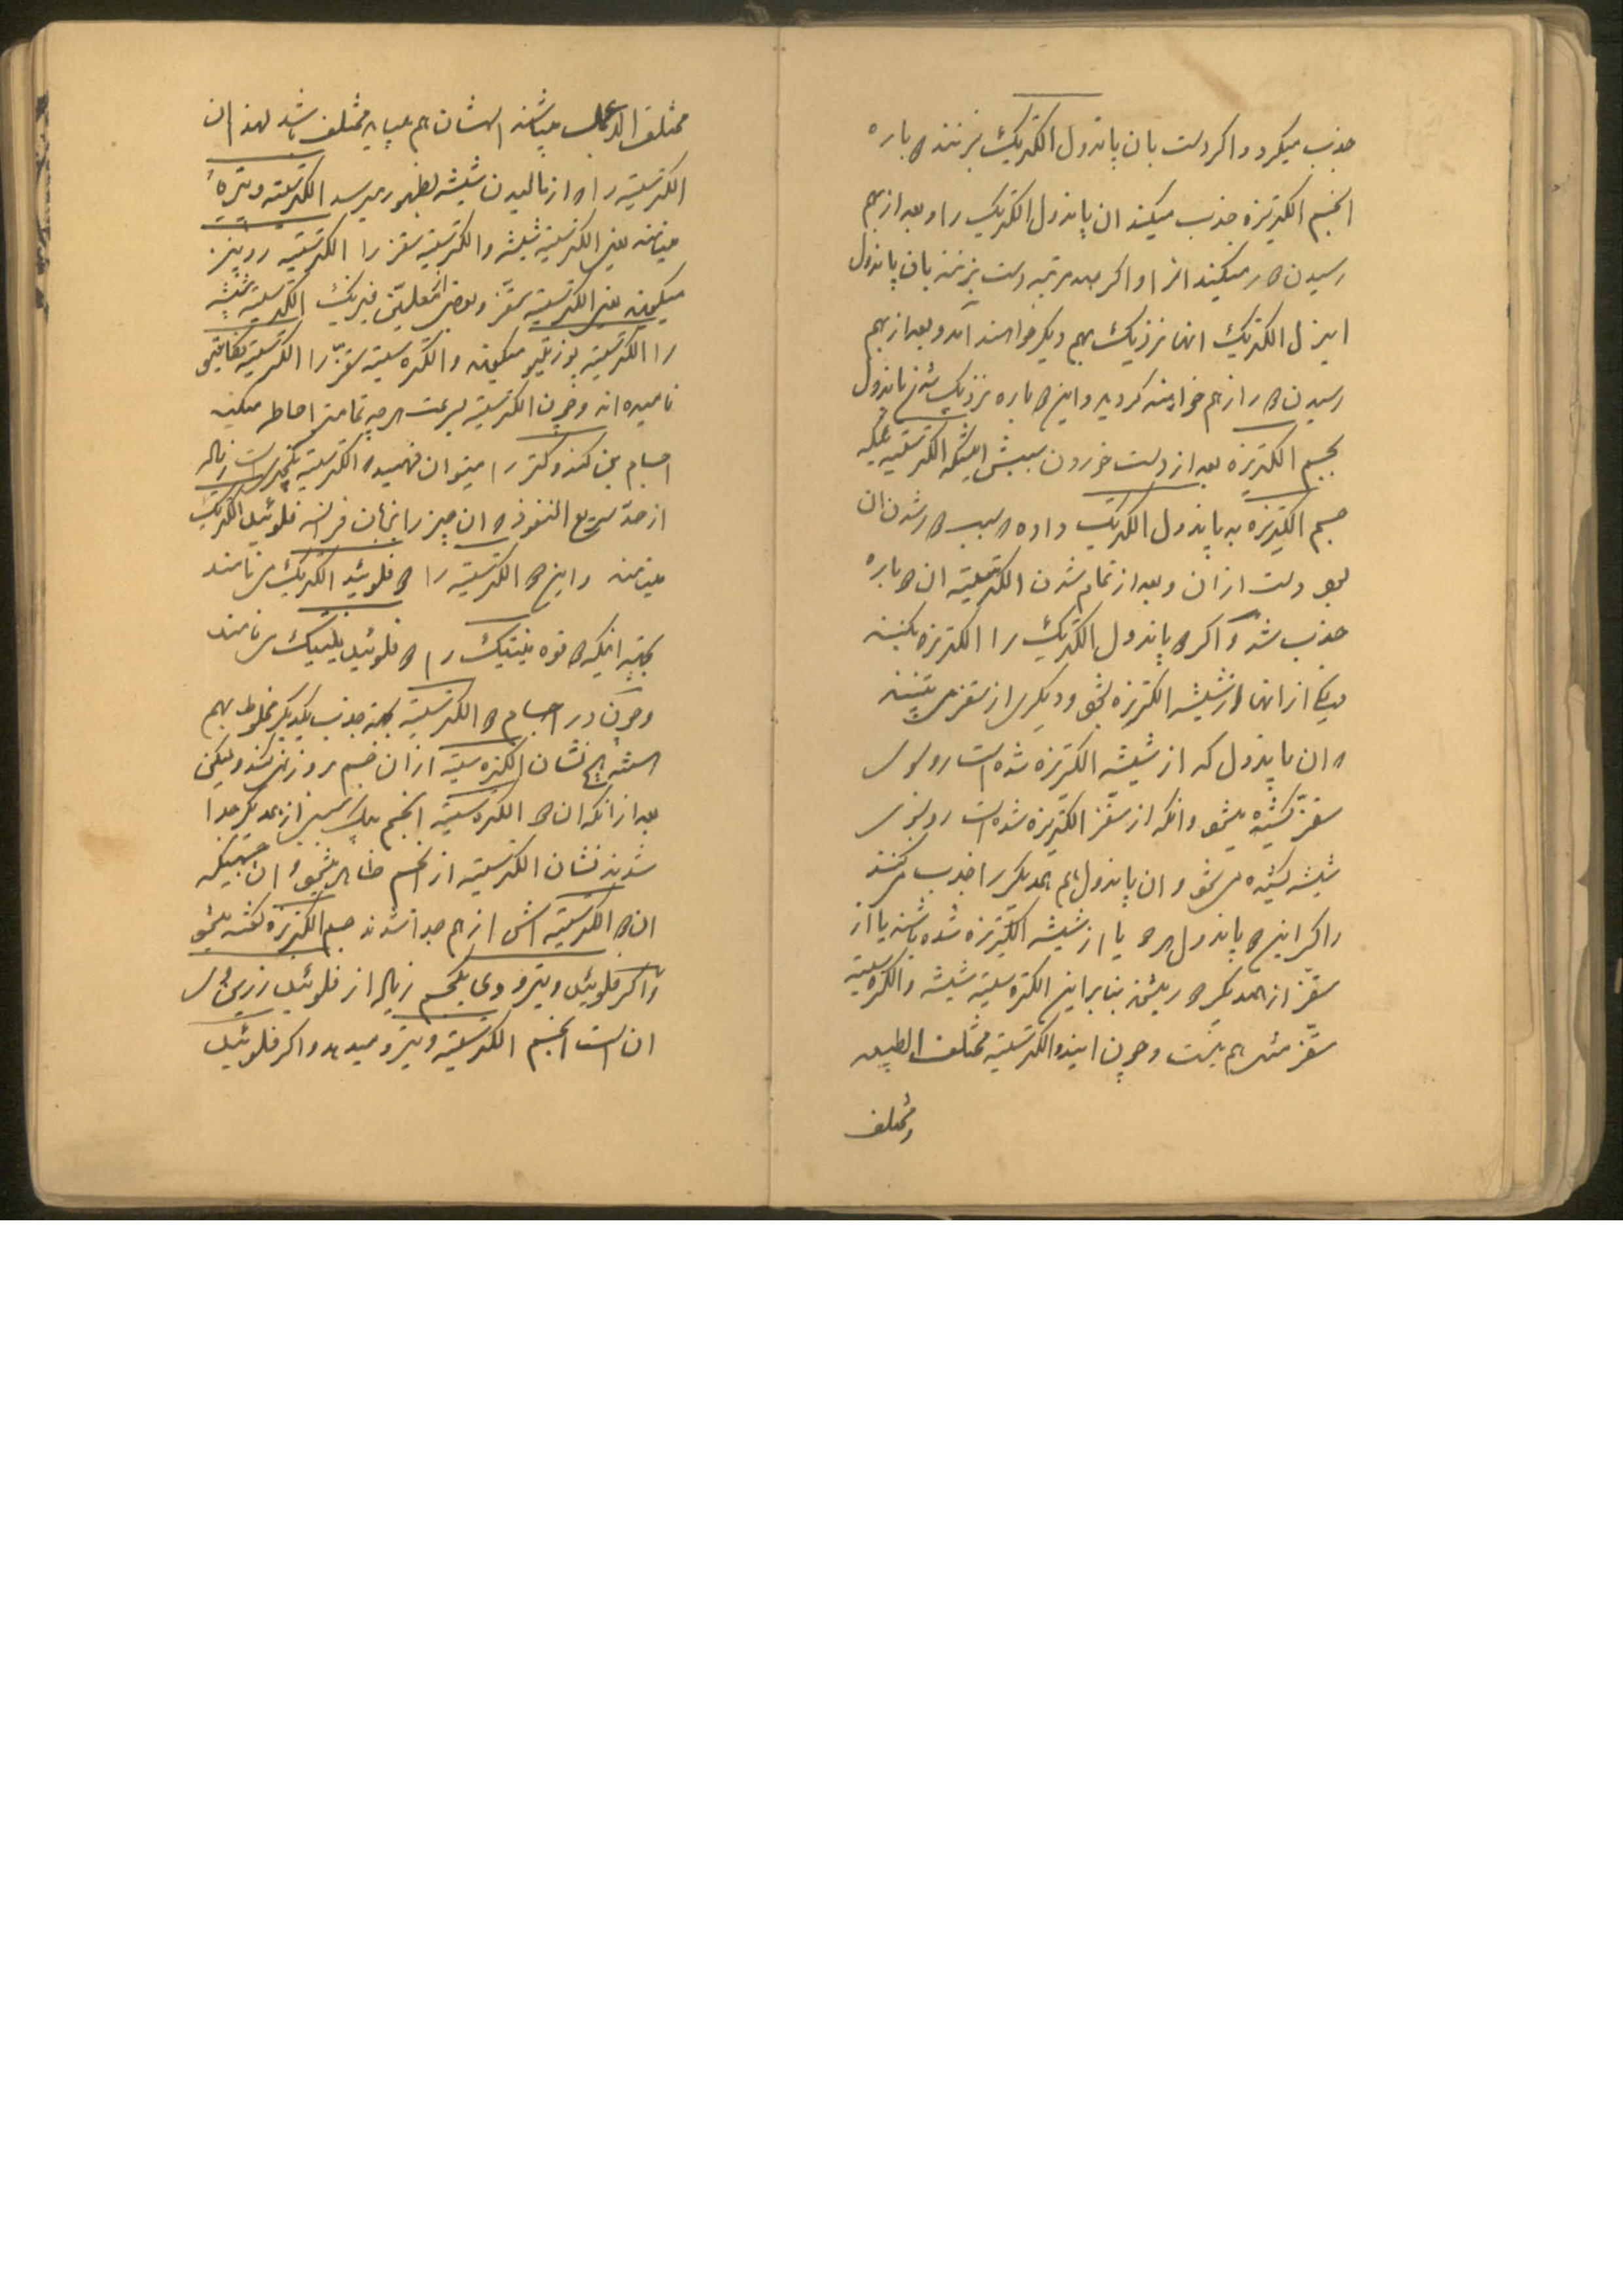 جذب میکرد و اکر دست بان پاندول الکتریک بزنند دوباره
الجسم الکتریزه جذب میکند ان پاندول الکتریک را و بعد از بهم
رسیدن دور میکند انرا و اکر صد مرتبه دست بزنند بان پاندول
الکتریک انها نزدیک بهم دیکر خواهند امد و بعد از بهم
رسیدن دور از هم خواهند کردید و این دوباره نزدیک شدن پاندول
بجسم الکتریزه بعد از دست خوردن سببش اینکه الکتریسیته
جسم الکتریزه به پاندول الکتریک داده و سبب دور شدن ان
بود دست از ان و بعد از تمام شدن الکتریسیته ان دوباره
جذب شد و اکر دو پاندول الکتریک را الکتریزه بکنند
یکی از انها از شیشه الکتریزه بشود و دیکری از سقز
ان پاندول که از شیشه الکتریزه شده است رو بسوی
سقز کشیده میشود و انکه از سقز الکتریزه شده است رو بسوی
شیشه کشیده میشود و ان پاندول هم همدیکر را جذب میکنند
و اکر این دو پاندول هر دو یا از شیشه الکتریزه شده باشند یا از
سقز از همدیکر دور میشوند بنا براین الکتریسیته شیشه و الکتریسیته
سقز مثل هم نیست و چون ایندو الکتریسیته مختلف الطبیعه
و مختلف
مختلف العمل میباشند اسمشان هم میباید مختلف باشد لهذا ان
الکتریسیته را که از مالیدن شیشه بظهور میرسد الکتریسیته ویتره
مینامند یعنی الکتریسیته شیشه و الکتریسیته سقز را الکتریسیته رزینز
میکویند یعنی الکتریسیته سقز و بعضی از معلمین فیزیک الکتریسیته شیشه
را الکتریسیته پوزیتیو میکویند و الکتریسیته سقز را الکتریسیته نکاتیو
نامیده اند و چون الکتریسیته بسرعت هر چه تمامتر احاطه میکند
اجسام کندوکتر را میتوان فهمید که الکتریسیته یکچیزیست زیاده
از حد سریع النفوذ که ان چیز را بزبان فرانسه فلوئید الکتریک
مینامند و این دو الکتریسیته را دو فلوئید الکتریک می نامند
بجهة اینکه دو قوه مینیتیک را دو فلوئید مینیتیک می نامند
و چون در اجسام دو الکتریسیته بجهة جذب یکدیکر مخلوط بهم
هستند هیچ نشان الکتریسیته از ان جسم بروز نمیکند ولیکن
بعد از انکه ان دو الکتریسیته الجسم بیک سببی از همدیکر جدا
شدند نشان الکتریسیته از الجسم ظاهر میشود و ان جسمیکه
ان دو الکتریسیته اش از هم جدا شدند جسم الکتریزه کفته میشود
و اکر فلوئید ویترو در یکجسم زیاده از فلوئید رزینوس
ان است الجسم الکتریسیته ویترو میدهد و اکر فلوئید